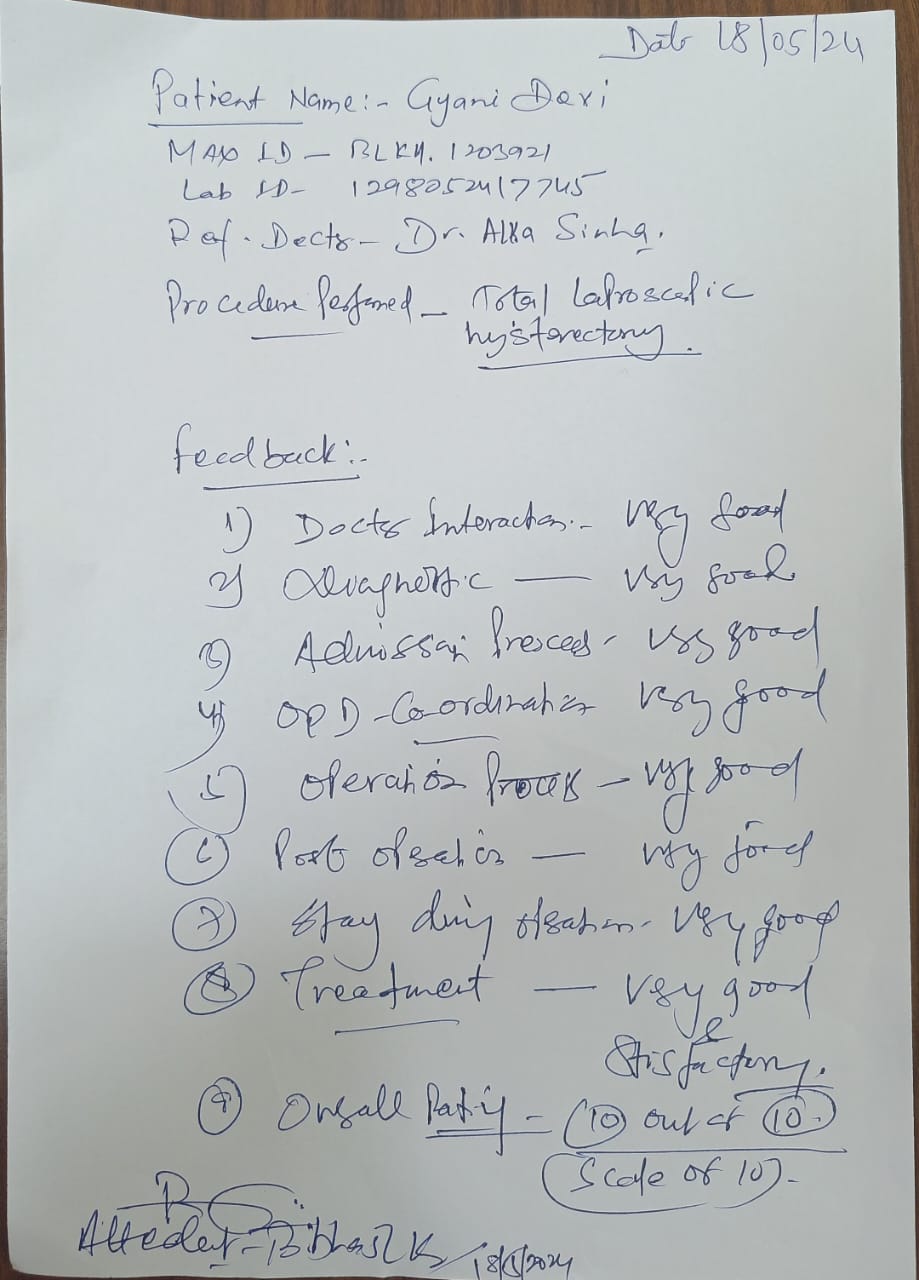 Date 18/05/24
Patient Name:- Gyani Devi
MAX ID - BLKH. 1203921
Lab ID- 1298052417745
Ref. Doctor - Dr. Alka Sinha.
Procedure Performed - Total Laproscopic
hysterectomy.
Feedback:-
1) Doctor Interaction.- Very good
2) Diagnostic — Very good.
3) Admission Process - Very good
4) OPD -Co-ordination Very good
5) Operation Process - Very good
6) Post operation — Very good
7) Stay during operation - Very good
8) Treatment — Very good
&
Stisfactory.
9) Overall Rating - 10 out of 10.
(Scale of 10).
Attedent - 18/5/2024